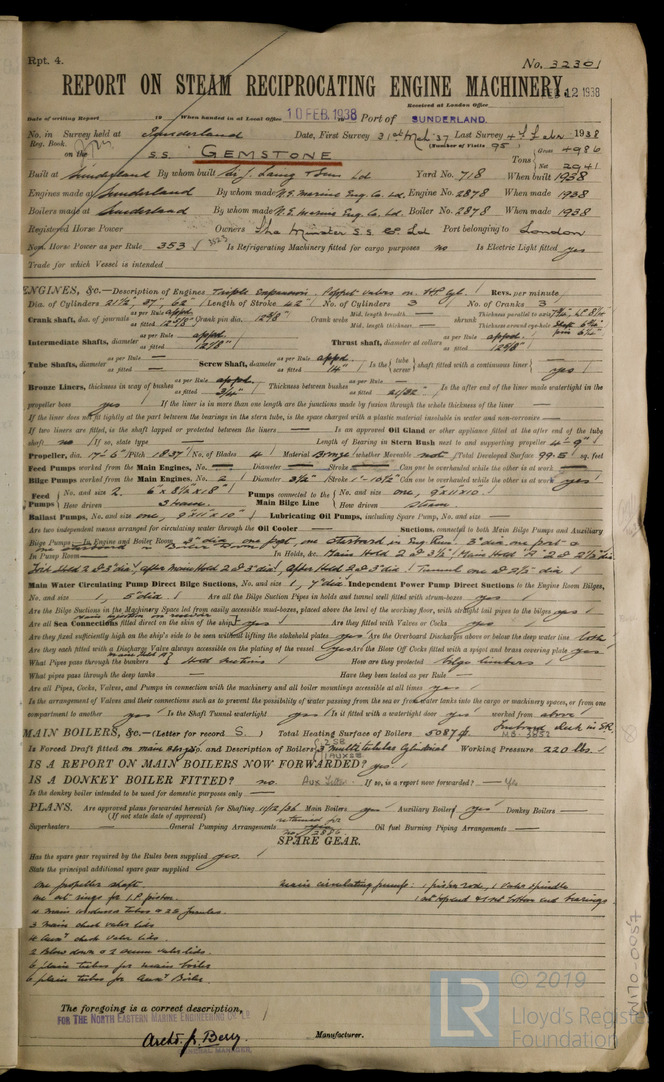 Rpt. 4.
No. 32301
REPORT ON STEAM RECIPROCATING ENGINE MACHINERY.
Received at London Office 12 1938
Date of writing Report 19 When handed in at Local Office 10 FEB. 1938 Port of SUNDERLAND.
No. in Survey held at Sunderland Date, First Survey 31st Last Survey 4th 1938
Reg. Book. (Number of Visits 95)
on the S.S. GEMSTONE Tons Gross 4986 Net 2941
Built at Sunderland By whom built Sir J. Laing & Sons Ld Yard No. 718 When built 1938
Engines made at Sunderland By whom made N.E. Marine Eng. Co. Ld. Engine No. 2878 When made 1938
Boilers made at Sunderland By whom made N.E. Marine Eng. Co. Ld. Boiler No. 2878 When made 1938
Registered Horse Power Owners The Minster S.S. Co. Ld Port belonging to London
Nom. Horse Power as per Rule 353 Is Refrigerating Machinery fitted for cargo purposes no Is Electric Light fitted yes
Trade for which Vessel is intended
ENGINES, &c.—Description of Engines Triple Expansion. Poppet valves on H.P. Cyl. Revs. per minute
Dia. of Cylinders 21½", 37", 62" Length of Stroke 42" No. of Cylinders 3 No. of Cranks 3
Crank shaft, dia. of journals as per Rule appd. as fitted Crank pin dia. Crank webs Mid. length breadth — Mid. length thickness — shrunk Thickensss parallel to axis Thickness around eye-hole
Intermediate Shafts, diameter as per Rule appd. as fitted Thrust shaft, diameter at collars as per Rule appd. as fitted
Tube Shafts, diameter as per Rule — as fitted — Screw Shaft, diameter as per Rule appd. as fitted 14" Is the tube screw shaft fitted with a continuous liner — yes
Bronze Liners, thickness in way of bushes as per Rule appd. as fitted 3/4" Thickness between bushes as per Rule — as fitted 21/32" Is the after end of the liner made watertight in the
propeller boss yes If the liner is in more than one length are the junctions made by fusion through the whole thickness of the liner —
If the liner does not fit tightly at the part between the bearings in the stern tube, is the space charged with a plastic material insoluble in water and non-corrosive —
If two liners are fitted, is the shaft lapped or protected between the liners — Is an approved Oil Gland or other appliance fitted at the after end of the tube
shaft no If so, state type — Length of Bearing in Stern Bush next to and supporting propeller 4'- 9"
Propeller, dia. 17'- 6" Pitch 18.37 No. of Blades 4 Material Bronze whether Moveable not Total Developed Surface 99.5 sq. feet
Feed Pumps worked from the Main Engines, No. — Diameter — Stroke — Can one be overhauled while the other is at work —
Bilge Pumps worked from the Main Engines, No. 2 Diameter 3½" Stroke 1'- 10½" Can one be overhauled while the other is at work yes
Feed Pumps No. and size 2. 6" x 8½" x 18" Pumps connected to the Main Bilge Line No. and size one, 9x11x10.
How driven Steam How driven Steam
Ballast Pumps, No. and size one, 9"x11"x10" Lubricating Oil Pumps, including Spare Pump, No. and size —
Are two independent means arranged for circulating water through the Oil Cooler — Suctions, connected to both Main Bilge Pumps and Auxiliary
Bilge Pumps:—In Engine and Boiler Room 3" dia, one port, one starboard in Eng. Room. 3" dia one port & one starboard in Boiler Room
In Pump Room In Holds, &c. Main Hold 2 @ 3½" Main Hold "A" 2 @ 2½" dia
Fore Hold 2 @ 3" dia, after Main Hold 2 @ 3" dia, after Hold 2 @ 3" dia. Tunnel one @ 2½" dia
Main Water Circulating Pump Direct Bilge Suctions, No. and size 1, 7" dia Independent Power Pump Direct Suctions to the Engine Room Bilges,
No. and size 1, 5" dia. Are all the Bilge Suction Pipes in holds and tunnel well fitted with strum-boxes yes
Are the Bilge Suctions in the Machinery Space led from easily accessible mud-boxes, placed above the level of the working floor, with straight tail pipes to the bilges yes
Are all Sea Connections fitted direct on the skin of the ship yes Are they fitted with Valves or Cocks yes
Are they fixed sufficiently high on the ship's side to be seen without lifting the stokehold plates yes Are the Overboard Discharges above or below the deep water line both
Are they each fitted with a Discharge Valve always accessible on the plating of the vessel yes Are the Blow Off Cocks fitted with a spigot and brass covering plate yes
What Pipes pass through the bunkers Hold suctions How are they protected bilge limbers
What pipes pass through the deep tanks — Have they been tested as per Rule —
Are all Pipes, Cocks, Valves, and Pumps in connection with the machinery and all boiler mountings accessible at all times yes
Is the arrangement of Valves and their connections such as to prevent the possibility of water passing from the sea or from water tanks into the cargo or machinery spaces, or from one
compartment to another yes Is the Shaft Tunnel watertight yes Is it fitted with a watertight door yes worked from above
MAIN BOILERS, &c.—(Letter for record S.) Total Heating Surface of Boilers 5087
Is Forced Draft fitted on main No. and Description of Boilers multitubular Cylindrical Working Pressure 220 lbs.
IS A REPORT ON MAIN BOILERS NOW FORWARDED? yes
IS A DONKEY BOILER FITTED? no. If so, is a report now forwarded? —
Is the donkey boiler intended to be used for domestic purposes only —
PLANS. Are approved plans forwarded herewith for Shafting 11/12/36 Main Boilers yes Auxiliary Boilers yes Donkey Boilers —
(If not state date of approval)
Superheaters — General Pumping Arrangements Oil fuel Burning Piping Arrangements —
SPARE GEAR.
Has the spare gear required by the Rules been supplied yes.
State the principal additional spare gear supplied
One propeller shaft. Main circulating pump: 1 piston rod, 1 valve spindle
One set rings for I.P. piston. 1 set top end & 1 set bottom end bearings
4 main condenser tubes & 22 ferrules.
3 main check valve lids
4 Auxy check valve lids.
2 Blow down & 2 scum valve lids.
6 plain tubes for main boiler
6 plain tubes for Auxy Boiler.
The foregoing is a correct description,
FOR THE NORTH EASTERN MARINE ENGINEERING Co. LD.
Archd. J. Berry Manufacturer.
GENERAL MANAGER.
W170-0057
© 2019
LR Lloyd's Register
Foundation